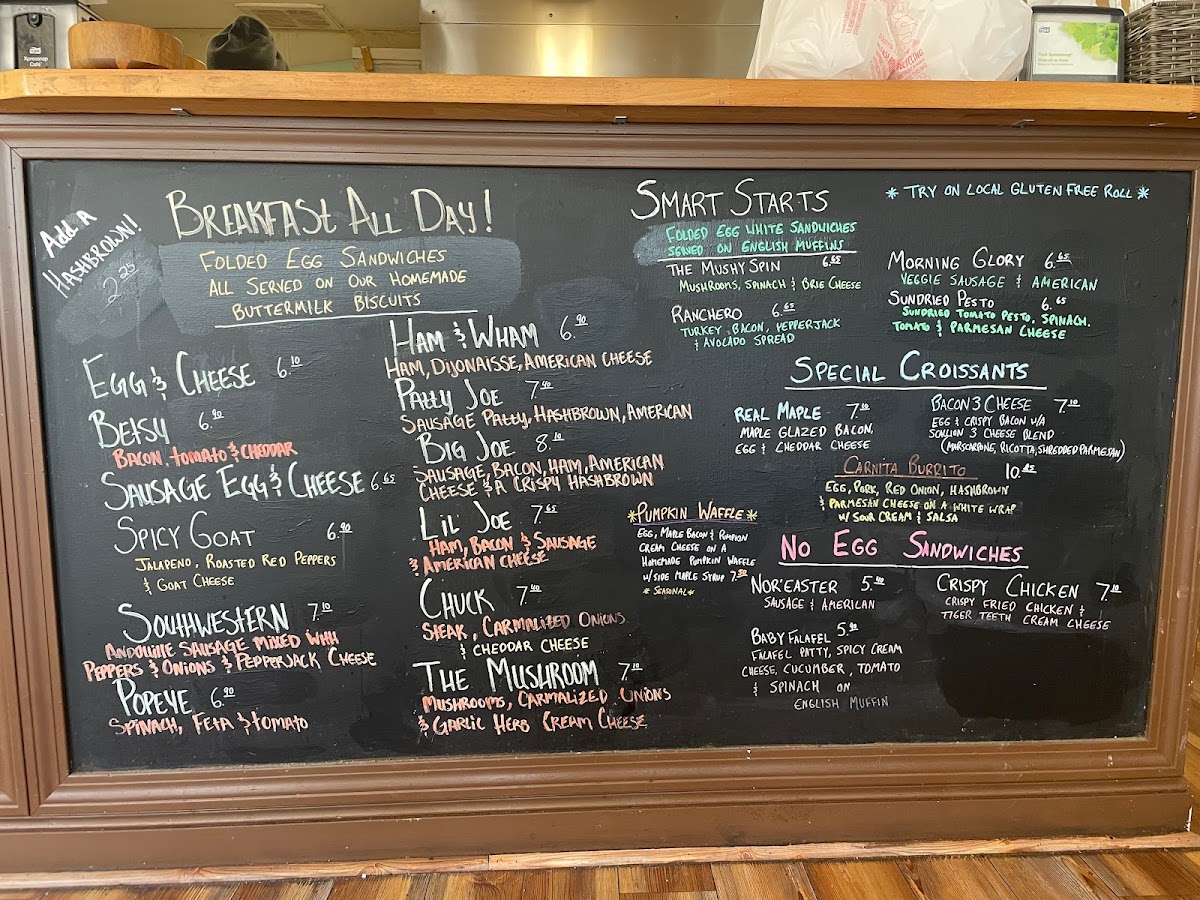 Add A
HASHBROWN!
2.25
BREAKFAST ALL DAY!
FOLDED EGG SANDWICHES
ALL SERVED ON OUR HOMEMADE
BUTTERMILK BISCUITS
EGG & CHEESE 6.10
BETSY 6.90
BACON, TOMATO & CHEDDAR
SAUSAGE EGG & CHEESE 6.65
SPICY GOAT 6.90
JALAPENO, ROASTED RED PEPPERS
& GOAT CHEESE
SOUTHWESTERN 7.10
ANDOUILLE SAUSAGE MIXED WITH
PEPPERS & ONIONS & PEPPERJACK CHEESE
POPEYE 6.90
SPINACH, FETA & TOMATO
HAM & WHAM 6.90
HAM, DIJONAISSE, AMERICAN CHEESE
PATTY JOE 7.40
SAUSAGE PATTY, HASHBROWN, AMERICAN
BIG JOE 8.10
SAUSAGE, BACON, HAM, AMERICAN
CHEESE & A CRISPY HASHBROWN
LIL' JOE 7.65
HAM, BACON & SAUSAGE
& AMERICAN CHEESE
CHUCK 7.40
STEAK, CARMALIZED ONIONS
& CHEDDAR CHEESE
THE MUSHROOM 7.10
MUSHROOMS, CARMALIZED ONIONS
& GARLIC HERB CREAM CHEESE
SMART STARTS
* TRY ON LOCAL GLUTEN FREE ROLL *
FOLDED EGG WHITE SANDWICHES
SERVED ON ENGLISH MUFFINS
THE MUSHY SPIN 6.65
MUSHROOMS, SPINACH & BRIE CHEESE
RANCHERO 6.65
TURKEY BACON, PEPPERJACK
& AVOCADO SPREAD
MORNING GLORY 6.65
VEGGIE SAUSAGE & AMERICAN
SUNDRIED PESTO 6.65
SUNDRIED TOMATO PESTO, SPINACH,
TOMATO & PARMESAN CHEESE
SPECIAL CROISSANTS
REAL MAPLE 7.10
MAPLE GLAZED BACON,
EGG & CHEDDAR CHEESE
BACON 3 CHEESE 7.10
EGG & CRISPY BACON W/A
SCALLION 3 CHEESE BLEND
(MARSCARPONE, RICOTTA, SHREDDED PARMESAN)
CARNITA BURRITO 10.25
EGG, PORK, RED ONION, HASHBROWN
& PARMESAN CHEESE ON A WHITE WRAP
W/ SOUR CREAM & SALSA
*PUMPKIN WAFFLE*
EGG, MAPLE BACON & PUMPKIN
CREAM CHEESE ON A
HOMEMADE PUMPKIN WAFFLE
W/ SIDE MAPLE SYRUP 7.50
*SEASONAL*
NO EGG SANDWICHES
NOR'EASTER 5.40
SAUSAGE & AMERICAN
CRISPY CHICKEN 7.10
CRISPY FRIED CHICKEN &
TIGER TEETH CREAM CHEESE
BABY FALAFEL 5.90
FALAFEL PATTY, SPICY CREAM
CHEESE, CUCUMBER, TOMATO
& SPINACH ON
ENGLISH MUFFIN